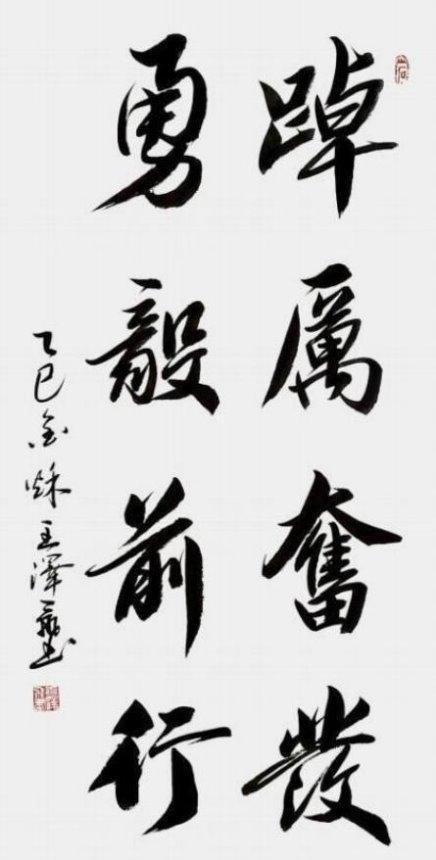 踔厲奮發
勇毅前行
乙巳金秋王澤